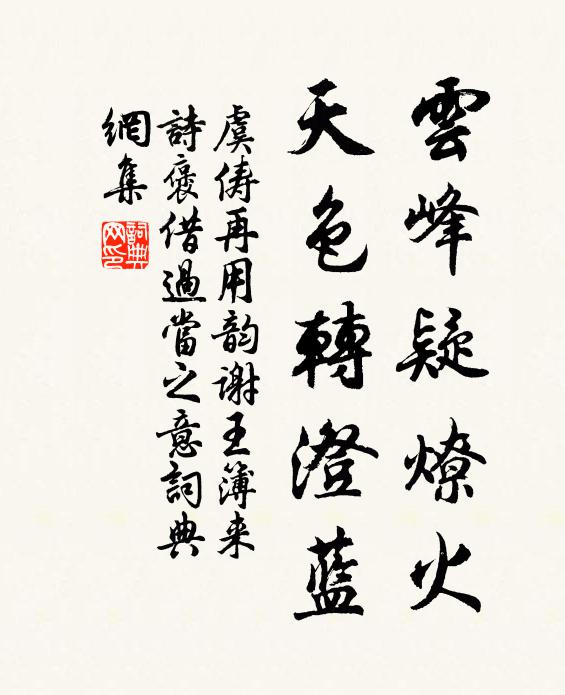 雲峰疑燎火
天色轉澄藍
虞俦再用韵谢王簿来
詩褒借過當之意詞典
網集
詞典
网印